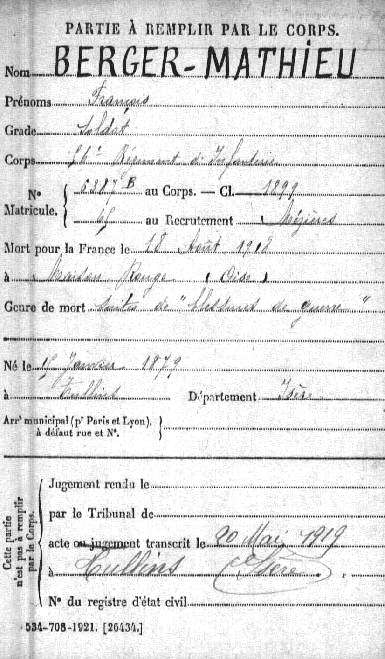 PARTIE À REMPLIR PAR LE CORPS.
Nom BERGER-MATHIEU
Prénoms François
Grade Soldat
Corps Régiment d'Infanterie
Nº Matricule. { 6387 B au Corps. — Cl. 1899
au Recrutement Mézières
Mort pour la France le 18 Août 1918
à Maison Rouge (Oise)
Genre de mort Suites de "blessures de guerre"
Né le Janvier 1879
à Tullins Département Isère
Arrt municipal (pr Paris et Lyon),
à défaut rue et Nº.
Cette partie n'est pas à remplir par le Corps.
Jugement rendu le
par le Tribunal de
acte ou jugement transcrit le 20 Mai 1919
à Tullins Isère
Nº du registre d'état civil
534-708-1921. [26434.]